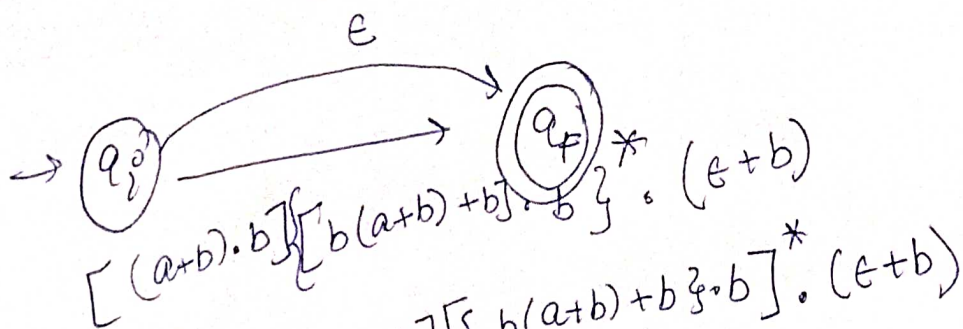 ϵ
→ qi
qF
[(a+b).b]{[b(a+b)+b].b}* . (ϵ+b)
][{b(a+b)+b}.b]* . (ϵ+b)